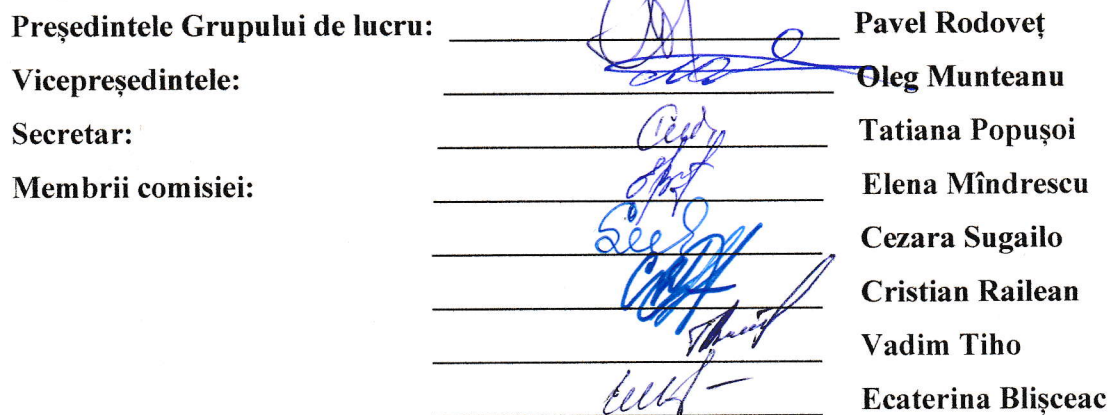 Președintele Grupului de lucru: Pavel Rodoveț
Vicepreședintele: Oleg Munteanu
Secretar: Tatiana Popușoi
Membrii comisiei: Elena Mîndrescu
Cezara Sugailo
Cristian Railean
Vadim Tiho
Ecaterina Blișceac